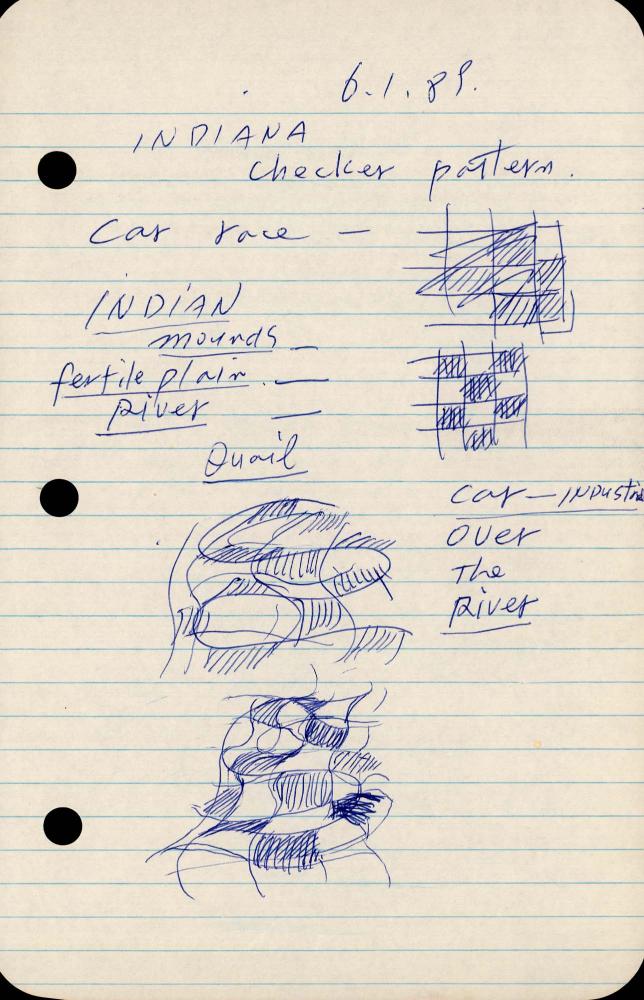 6.1.89.
INDIANA
checker pattern.
Car race —
INDIAN
mounds —
fertile plain. —
River —
Quail
Car — INDUSTRI
OVER
The
River